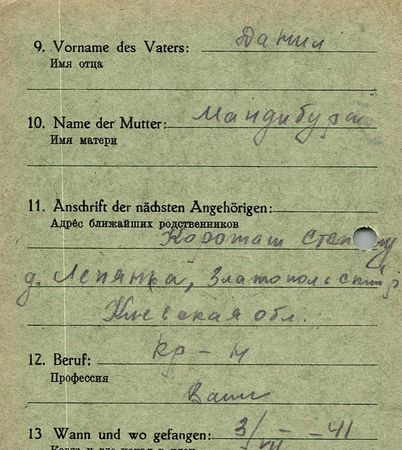 9. Vorname des Vaters: Данил
Имя отца
10. Name der Mutter: Мандибура
Имя матери
11. Anschrift der nächsten Angehörigen:
Адрéс ближайших родственников
Короташ
д. Лепянка, Златополь
Киевская обл.
12. Beruf: кр-н
Профессия
13 Wann und wo gefangen: 3/VII - 41